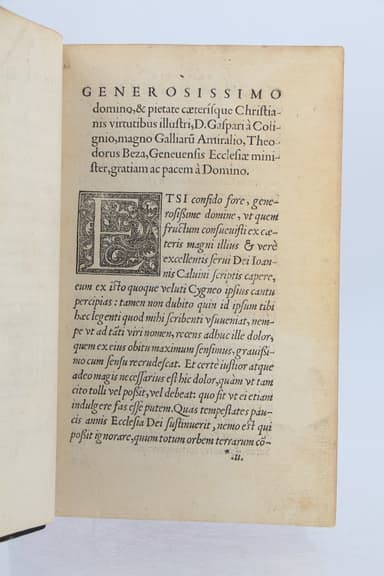 GENEROSISSIMO
domino, & pietate cæterisque Christia-
nis virtutibus illustri, D. Gaspari à Coli-
gnio, magno Galliarū Amiralio, Theo-
dorus Beza, Geneuensis Ecclesiæ mini-
ster, gratiam ac pacem à Domino.
ETSI confido fore, gene-
rosissime domine, vt quem
fructum consueuisti ex cæ-
teris magni illius & verè
excellentis serui Dei Ioan-
nis Caluini scriptis capere,
eum ex isto quoque veluti Cygneo ipsius cantu
percipias: tamen non dubito quin id ipsum tibi
hæc legenti quod mihi scribenti vsuueniat, nem-
pe vt ad tāti viri nomen, recens adhuc ille dolor,
quem ex eius obitu maximum sensimus, grauissi-
mo cum sensu recrudescat. Et certè iustior atque
adeo magis necessarius est hic dolor, quàm vt tam
cito tolli vel possit, vel debeat: quo fit vt ei etiam
indulgere fas esse putem. Quas tempestates pau-
cis annis Ecclesia Dei sustinuerit, nemo est qui
possit ignorare, quum totum orbem terrarum cō-
*.ii.